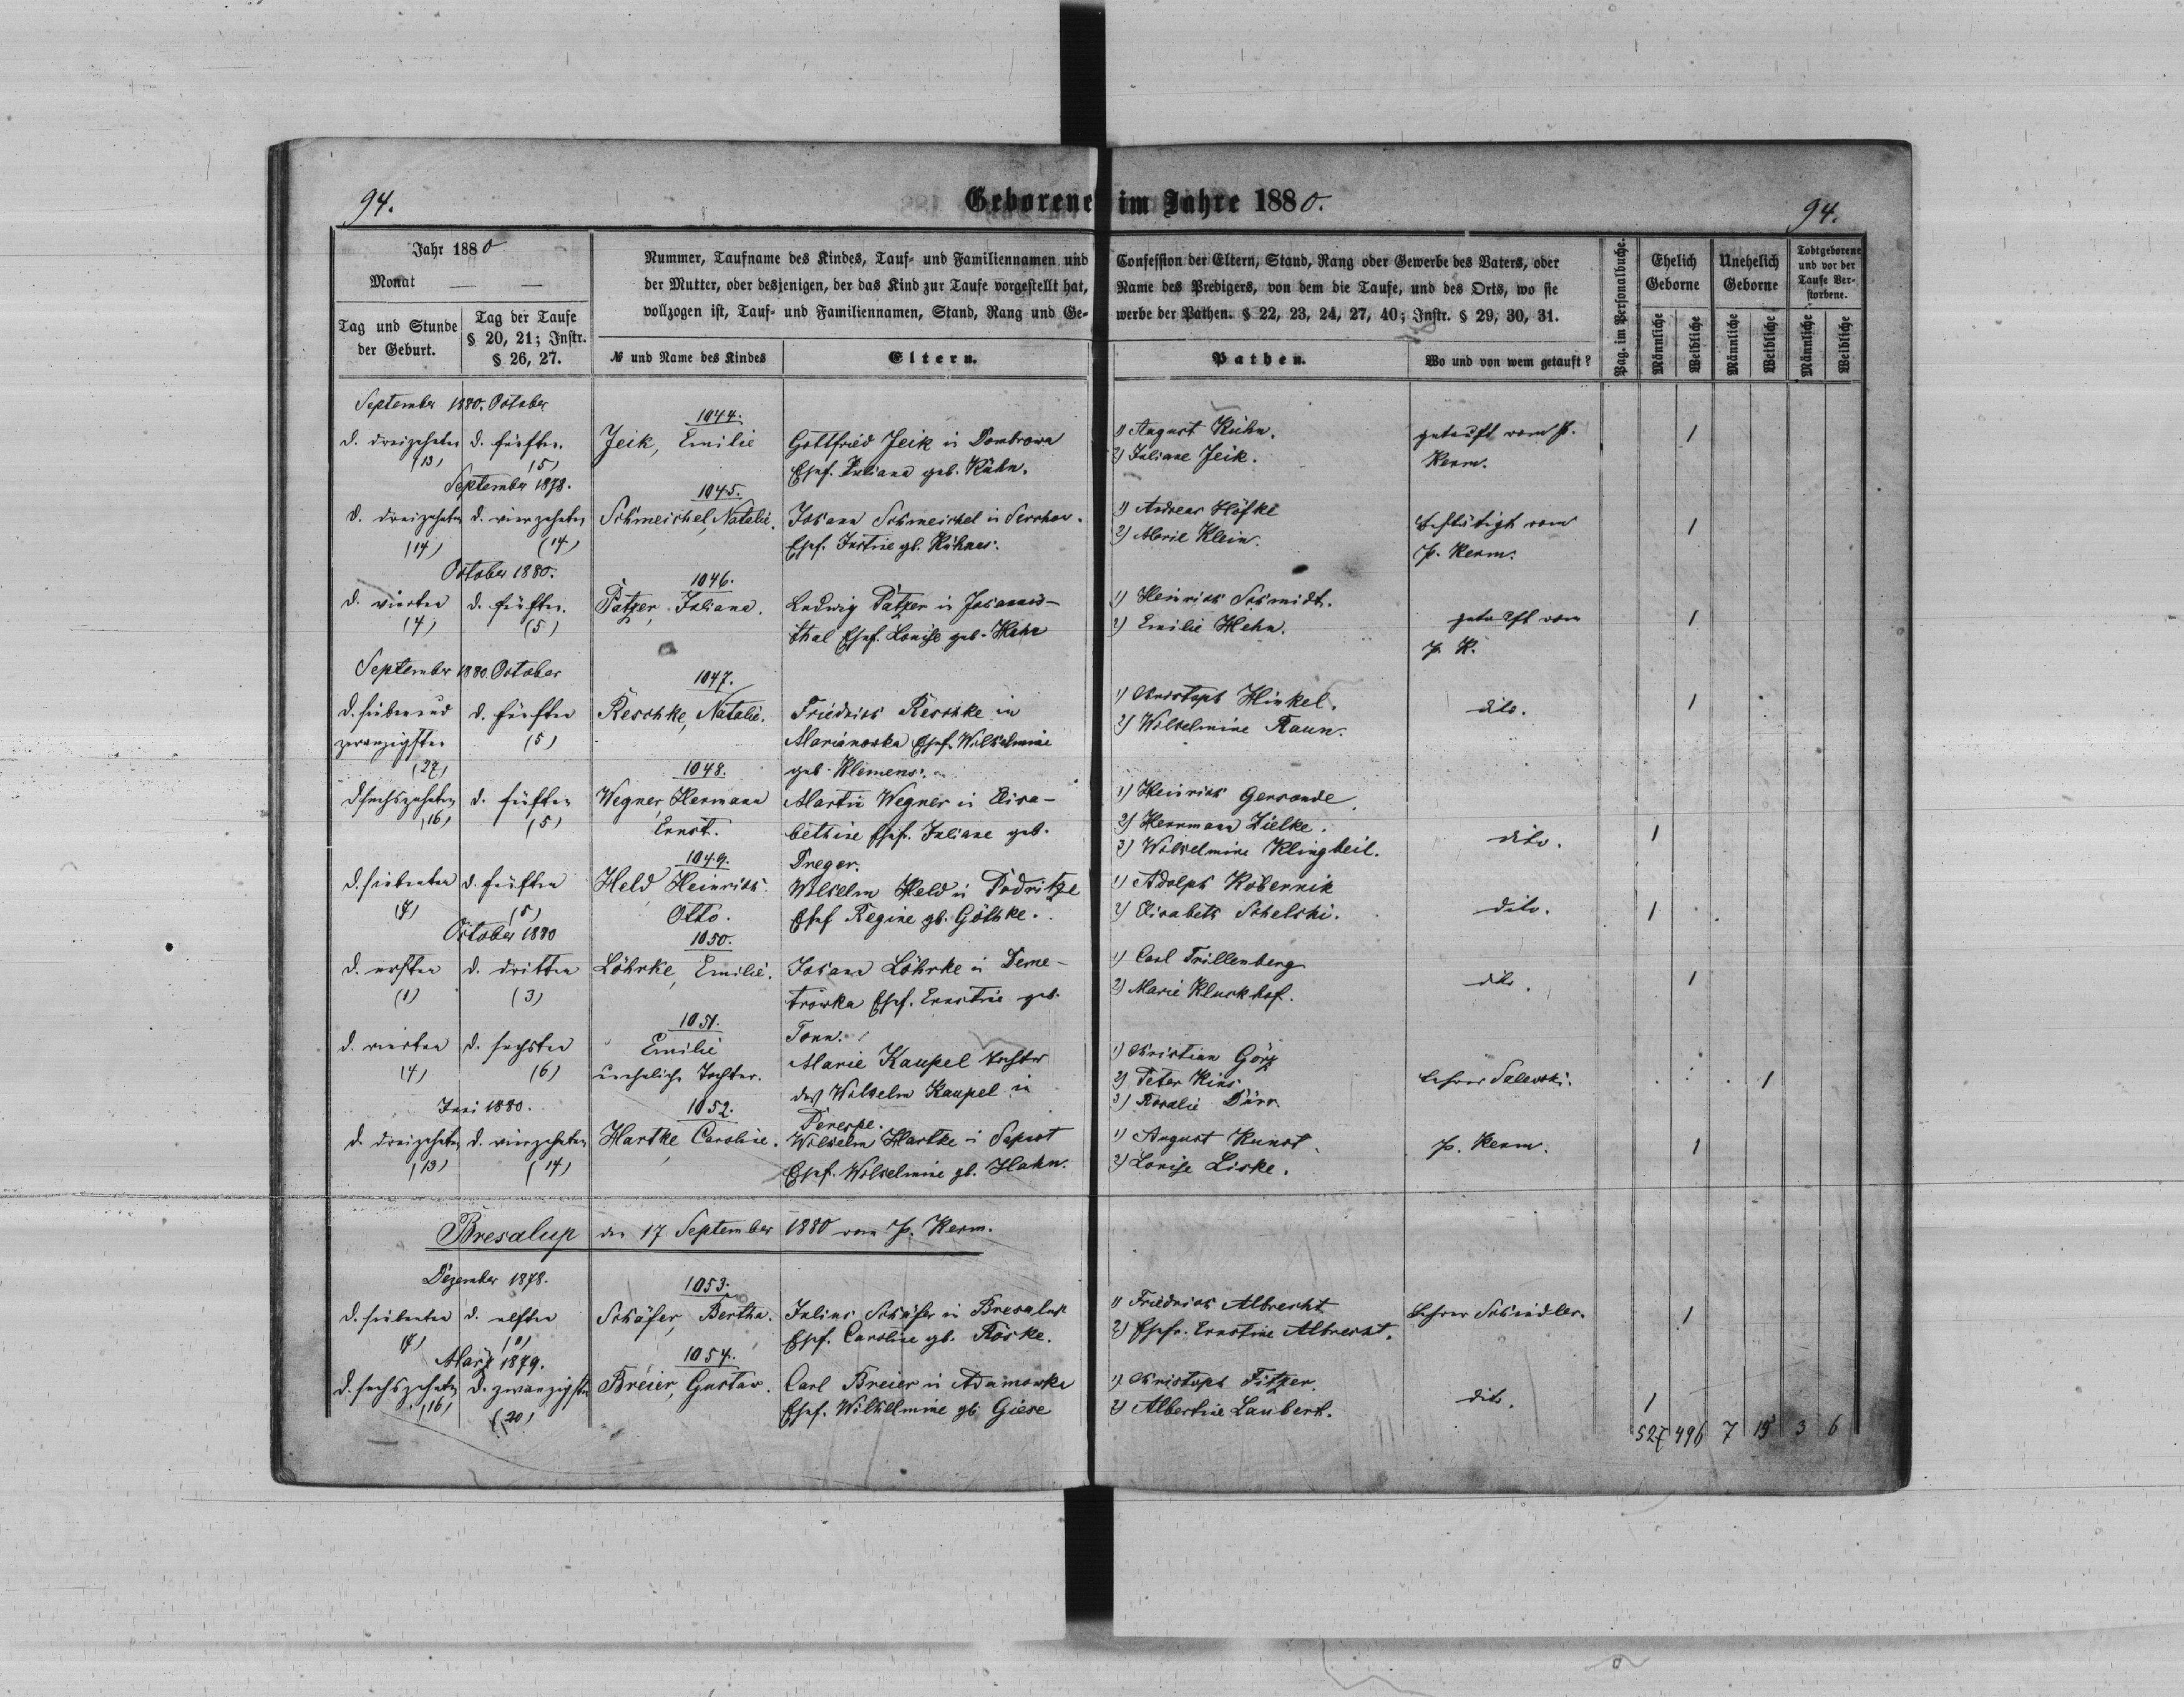 94.
Geborene im Jahre 1880.
94.
Jahr 1880
Monat — —
Tag und Stunde der Geburt.
Tag der Taufe § 20, 21; Instr. § 26, 27.
Nummer, Taufname des Kindes, Tauf- und Familiennamen und
der Mutter, oder desjenigen, der das Kind zur Taufe vorgestellt hat,
vollzogen ist, Tauf- und Familiennamen, Stand, Rang und Ge-
№ und Name des Kindes
Eltern.
Confession der Eltern, Stand, Rang oder Gewerbe des Vaters, oder
Name des Predigers, von dem die Taufe, und des Orts, wo sie
werbe der Pathen. § 22, 23, 24, 27, 40; Instr. § 29, 30, 31.
Pathen.
Wo und von wem getauft?
Pag. im Personalbuche.
Ehelich Geborne
Unehelich Geborne
Todtgeborene und vor der Taufe Verstorbene.
Männliche
Weibliche
Männliche
Weibliche
Männliche
Weibliche
September 1880. October
1044.
d. dreizehnten d. fünften.
(13) (5)
Jeik, Emilie
Gottfried Jeik in Dombrowa
Ehef. Juliana geb. Kühn.
1) August Kühn.
2) Juliane Jeik.
getauft vom P.
Kerm.
1
September 1878.
1045.
d. dreizehnten d. vierzehnten
(14) (14)
Schmeichel, Natalie.
Johann Schmeichel in
Ehef. Justine gb.
1) Andreas Höfke
2) Marie Klein.
bestätigt vom
P. Kerm.
1
October 1880.
1046.
d. vierten d. fünften.
(4) (5)
Patzer, Juliana.
Ludwig Patzer in Johannis-
thal Ehef. Louise geb. Hehn
1) Heinrich Schmidt.
2) Emilie Hehn.
getauft vom
P. K.
1
September 1880. October
1047.
d. sieben und d. fünften
zwanzigsten (5)
(27)
Reschke, Natalie.
Friedrich Reschke in
Marianowka Ehef. Wilhelmine
geb. Klemens.
1) Christoph Hinkel.
2) Wilhelmine Raun.
dito.
1
1048.
d. sechszehnten d. fünften
(16) (5)
Wegner, Hermann
Ernst.
Martin Wegner in Elisa-
bethine Ehef. Juliane geb.
Preger.
1) Heinrich Gersonde
2) Herrmann Zielke.
3) Wilhelmine Klingbeil.
dito.
1
1049.
d. siebenten d. fünften
(7) (5)
Held Heinrich
Otto.
Wilhelm Held in Podritze
Ehef Regine gb. Göthke.
1) Adolph Kobernik
2) Elisabeth Schelski.
dito.
1
October 1880
1050.
d. ersten d. dritten
(1) (3)
Löhrke, Emilie.
Johann Löhrke in Deme-
trowka Ehef. Ernstine geb.
Tonn.
1) Carl Trillenberg
2) Marie Kluckhof.
dito.
1
1051.
d. vierten d. sechsten
(4) (6)
Emilie
uneheliche Tochter.
Marie Kaupel Tochter
des Wilhelm Kaupel in
Perespe.
1) Christian Görz
2) Peter Kins
3) Rosalie Dürr.
Lehrer Salewski.
1
Juni 1880.
1052.
d. dreizehnten d. vierzehnten
(13) (14)
Hartke, Caroline.
Wilhelm Hartke in Sapust
Ehef. Wilhelmine gb. Hahn.
1) August Kunst
2) Louise Liske.
P. Kerm.
1
Bresalup den 17 September 1880 vom P. Kerm.
Dezember 1878.
1053.
d. siebenten d. elften
(7) (11)
Schäfer, Bertha.
Julius Schäfer in Bresalup
Ehef. Caroline gb. Röske.
1) Friedrich Albrecht
2) Ehefr. Ernstine Albrecht.
Lehrer Schindler.
1
März 1879.
1054.
d. sechszehnten d. zwanzigsten
(16) (20)
Breier, Gustav.
Carl Breier in Adamowka
Ehef. Wilhelmine gb Giese
1) Christoph Fitzer.
2) Albertine Laubert.
dito.
1
527 496 7 15 3 6